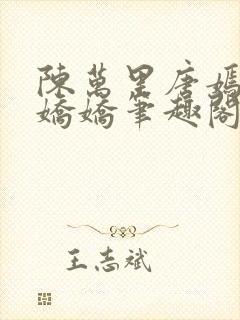 陳萬里唐嫣
嬌嬌筆趣閣
王志斌